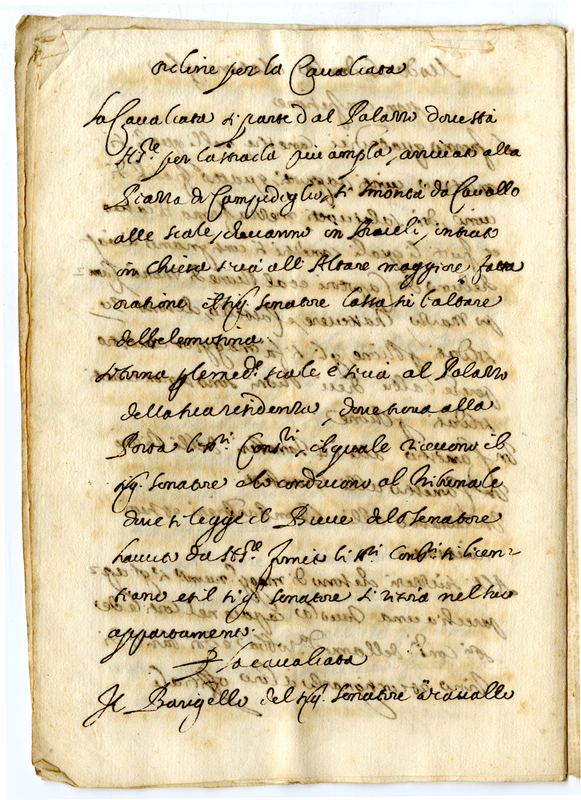 ordine per la Caualcata
La Caualcata si parte dal Palazzo doue stà
N.S.re per la strada piu ampla, arriuat alla
Piazza di Campidoglio, si smonta da Cavallo
alle scale, che uanno in Araceli, intrato
in Chiesa si uà all'Altare maggiore fatta
oratione il sig. Senatore lassa sù l'altare
dell'elemosina.
si torna p le med.e scale e si uà al Palazzo
della sua residenza, doue troua alla
Porta li SS.ri Cons.ri, li quale riceuono il
sig. Senatore e lo conducono al Tribunale
doue si legge il Breue dello Senatore
hauuto da N.S.re fornito li SS.ri Cons.ri si licen-
tiano et il sig. Senatore si ritira nel suo
appartamento.
P la caualcata
Il Barigello del sig. Senatore à cauallo